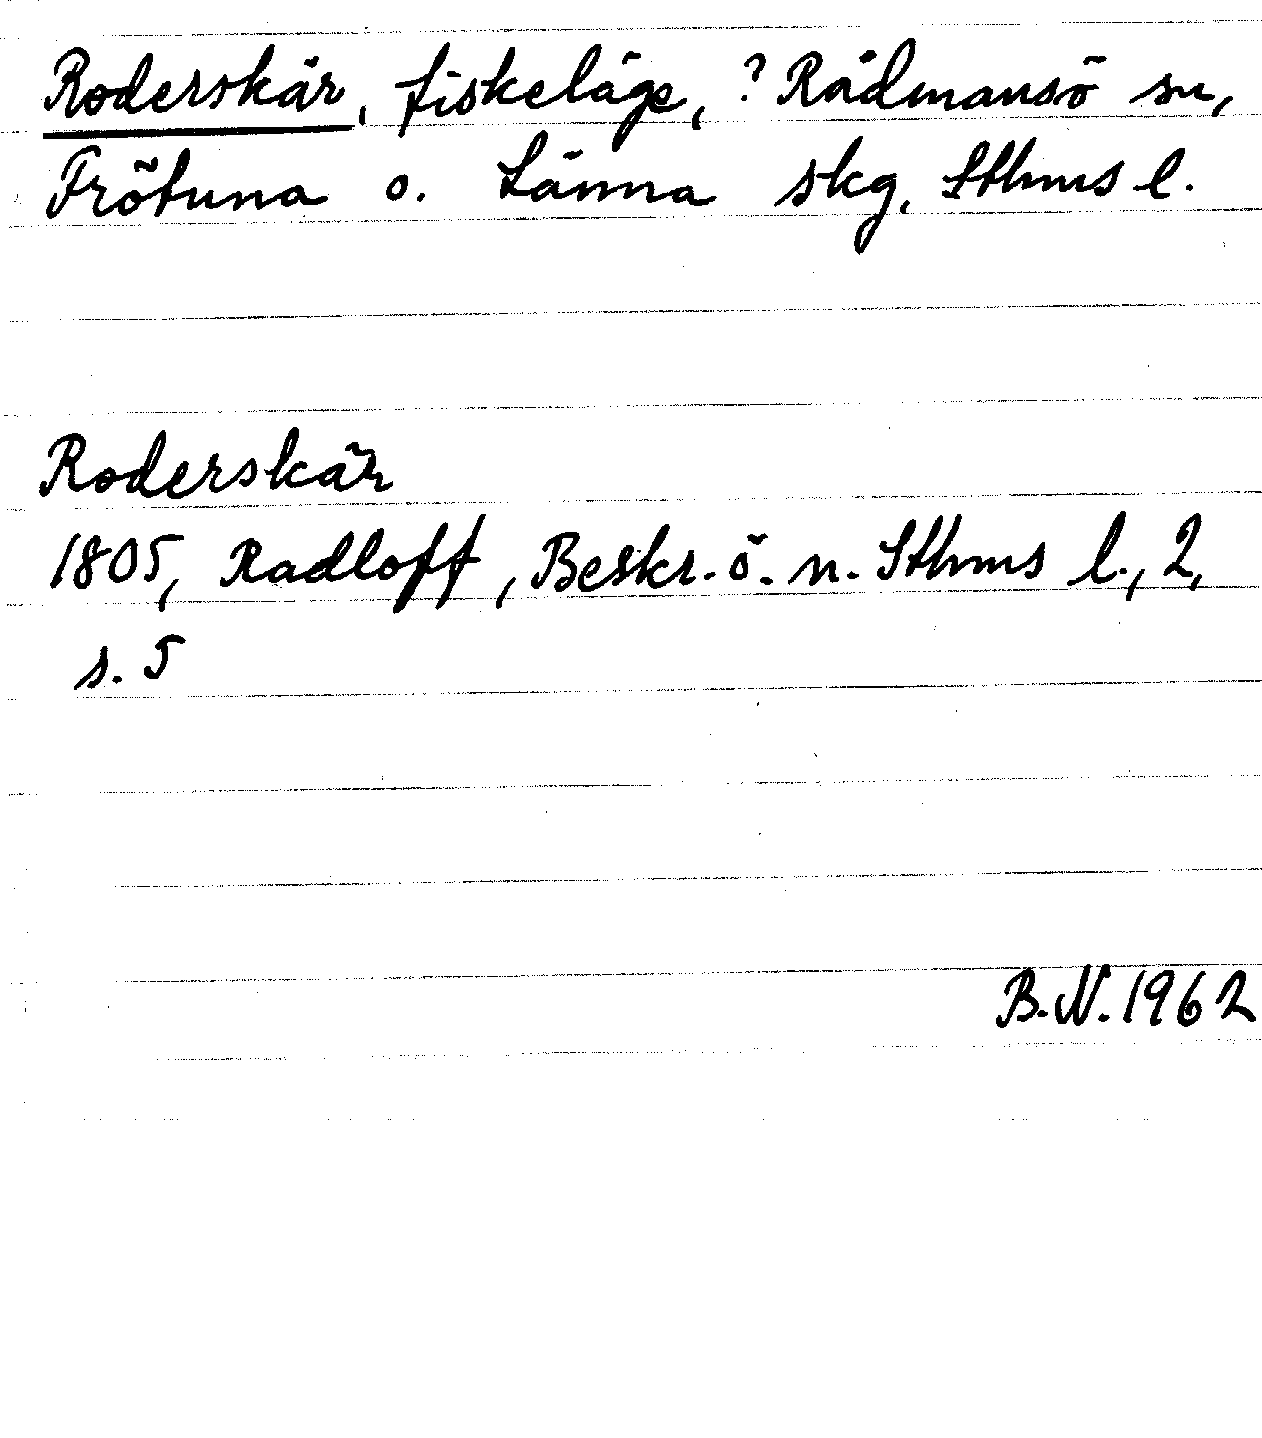 Roderskär, fiskeläge, ? Rådmansö sn,
Frötuna o. Länna skg, Sthms l.
Roderskär
1805, Radloff, Beskr. ö. n. Sthms l., 2,
s. 5
B.N. 1962